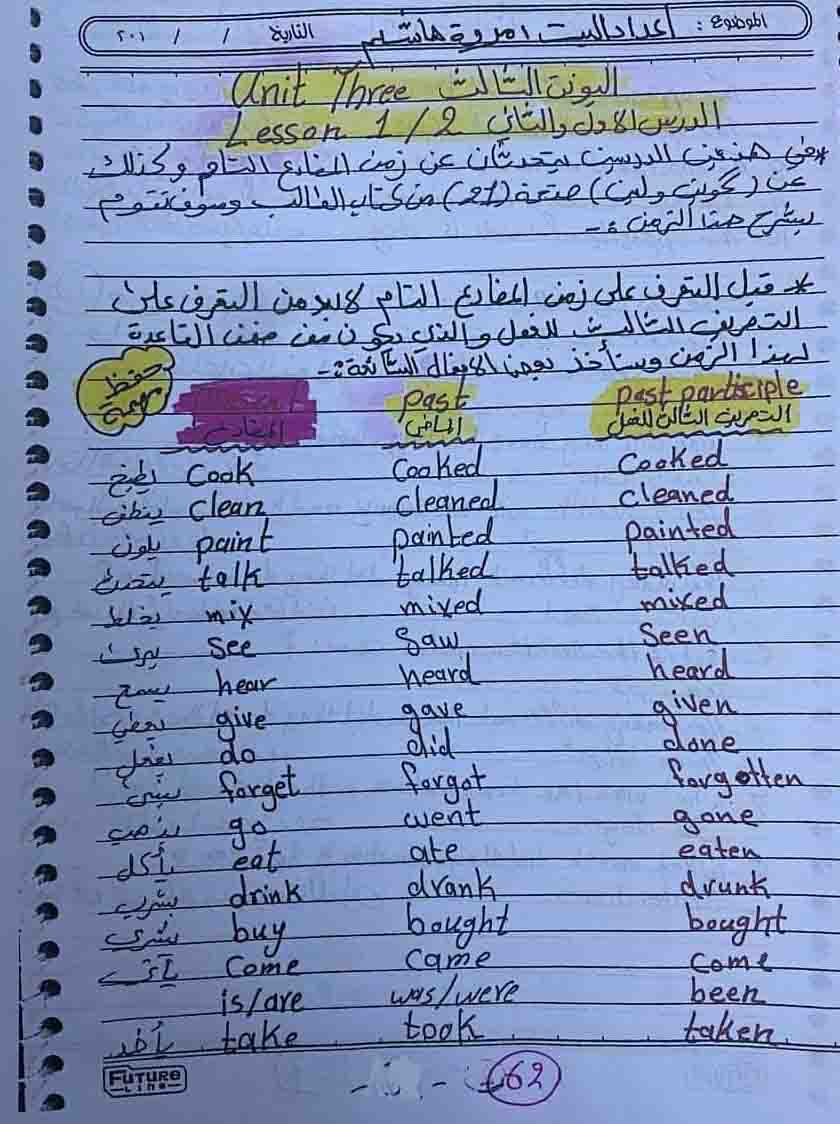 الموضوع: اعداد الست امروة هاشم التاريخ / / ٢٠١
Unit Three اليونت الثالث
Lesson 1/2 الدرس الاول والثاني
*في هذين الدرسين يتحدثان عن زمن المضارع التام وكذلك
عن (كوين ولين) صفحة (21) من كتاب الطالب وسوف نقوم
بشرح هذا الزمن :-
* قبل التعرف على زمن المضارع التام لابد من التعرف على
التصريف الثالث للفعل والذي يكون ضمن القاعدة
لهذا الزمن وسنأخذ بعض الافعال الشائعة:-
حفظ مهمة
Past Past participle
المضارع الماضي التصريف الثالث للفعل
يطبخ Cook Cooked Cooked
ينظف clean cleaned cleaned
يلون paint painted painted
يتحدث talk talked talked
يخلط mix mixed mixed
يرى see saw seen
يسمع hear heard heard
يعطي give gave given
يفعل do did done
ينسى forget forgot forgotten
يذهب go went gone
يأكل eat ate eaten
يشرب drink drank drunk
يشتري buy bought bought
يأتي Come came come
is/are was/were been
يأخذ take took taken
FUTURE LINE
62